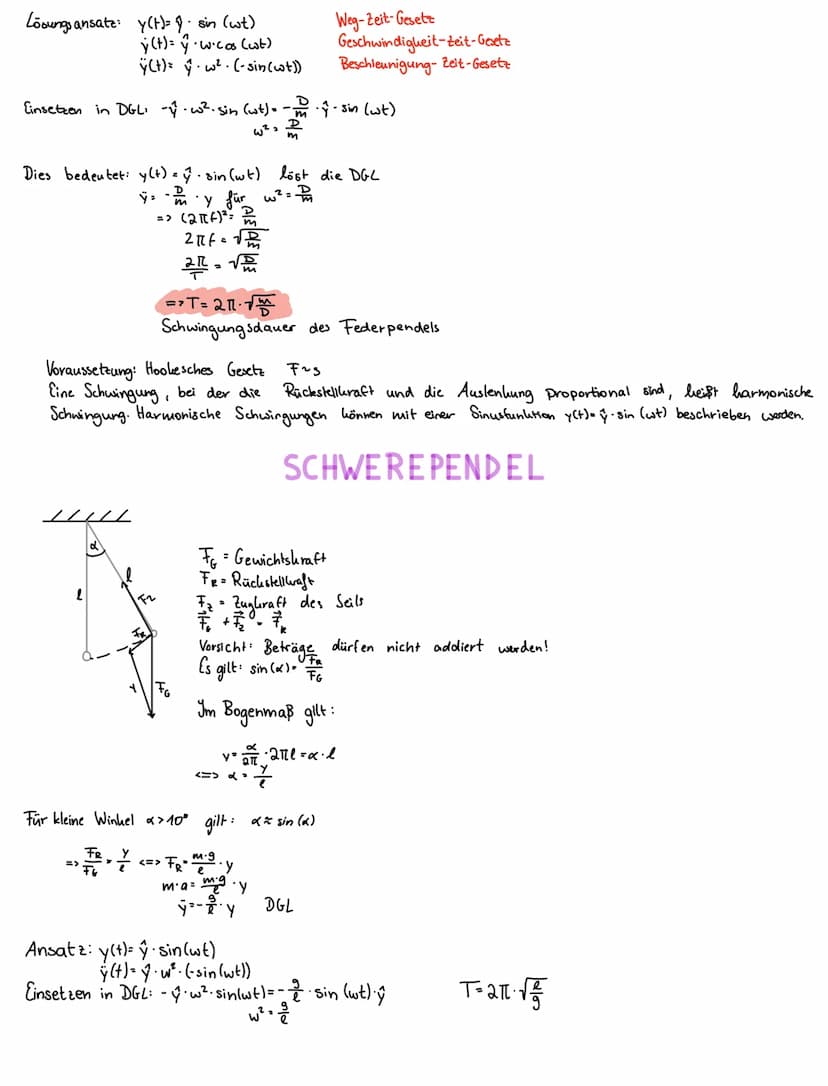 Lösungsansatz: y(t)= ŷ · sin (ωt) Weg-Zeit-Gesetz
ẏ(t)= ŷ · ω · cos (ωt) Geschwindigkeit-Zeit-Gesetz
ÿ(t)= ŷ · ω² · (-sin(ωt)) Beschleunigung-Zeit-Gesetz
Einsetzen in DGL: -ŷ · ω² · sin (ωt) = -D/m · ŷ · sin (ωt)
ω² = D/m
Dies bedeutet: y(t) = ŷ · sin(ωt) löst die DGL
ÿ = -D/m · y für ω² = D/m
=> (2πf)² = D/m
2πf = √(D/m)
2π/T = √(D/m)
=> T = 2π · √(m/D)
Schwingungsdauer des Federpendels
Voraussetzung: Hookesches Gesetz F~s
Eine Schwingung, bei der die Rückstellkraft und die Auslenkung proportional sind, heißt harmonische
Schwingung. Harmonische Schwingungen können mit einer Sinusfunktion y(t)= ŷ · sin (ωt) beschrieben werden.
SCHWEREPENDEL
α
l
l
F_Z
F_R
y
F_G
F_G = Gewichtskraft
F_R = Rückstellkraft
F_Z = Zugkraft des Seils
F⃗_G + F⃗_Z = F⃗_R
Vorsicht: Beträge dürfen nicht addiert werden!
Es gilt: sin(α) = F_R/F_G
Im Bogenmaß gilt:
y = α/2π · 2πl = α · l
<=> α = y/l
Für kleine Winkel α>10° gilt: α ≈ sin (α)
=> F_R/F_G = y/l <=> F_R = m·g/l · y
m·a = m·g/l · y
ÿ = -g/l · y DGL
Ansatz: y(t)= ŷ · sin(ωt)
ÿ(t)= ŷ · ω² · (-sin(ωt))
Einsetzen in DGL: -ŷ · ω² · sin(ωt) = -g/l · sin (ωt) · ŷ
ω² = g/l
T = 2π · √(l/g)